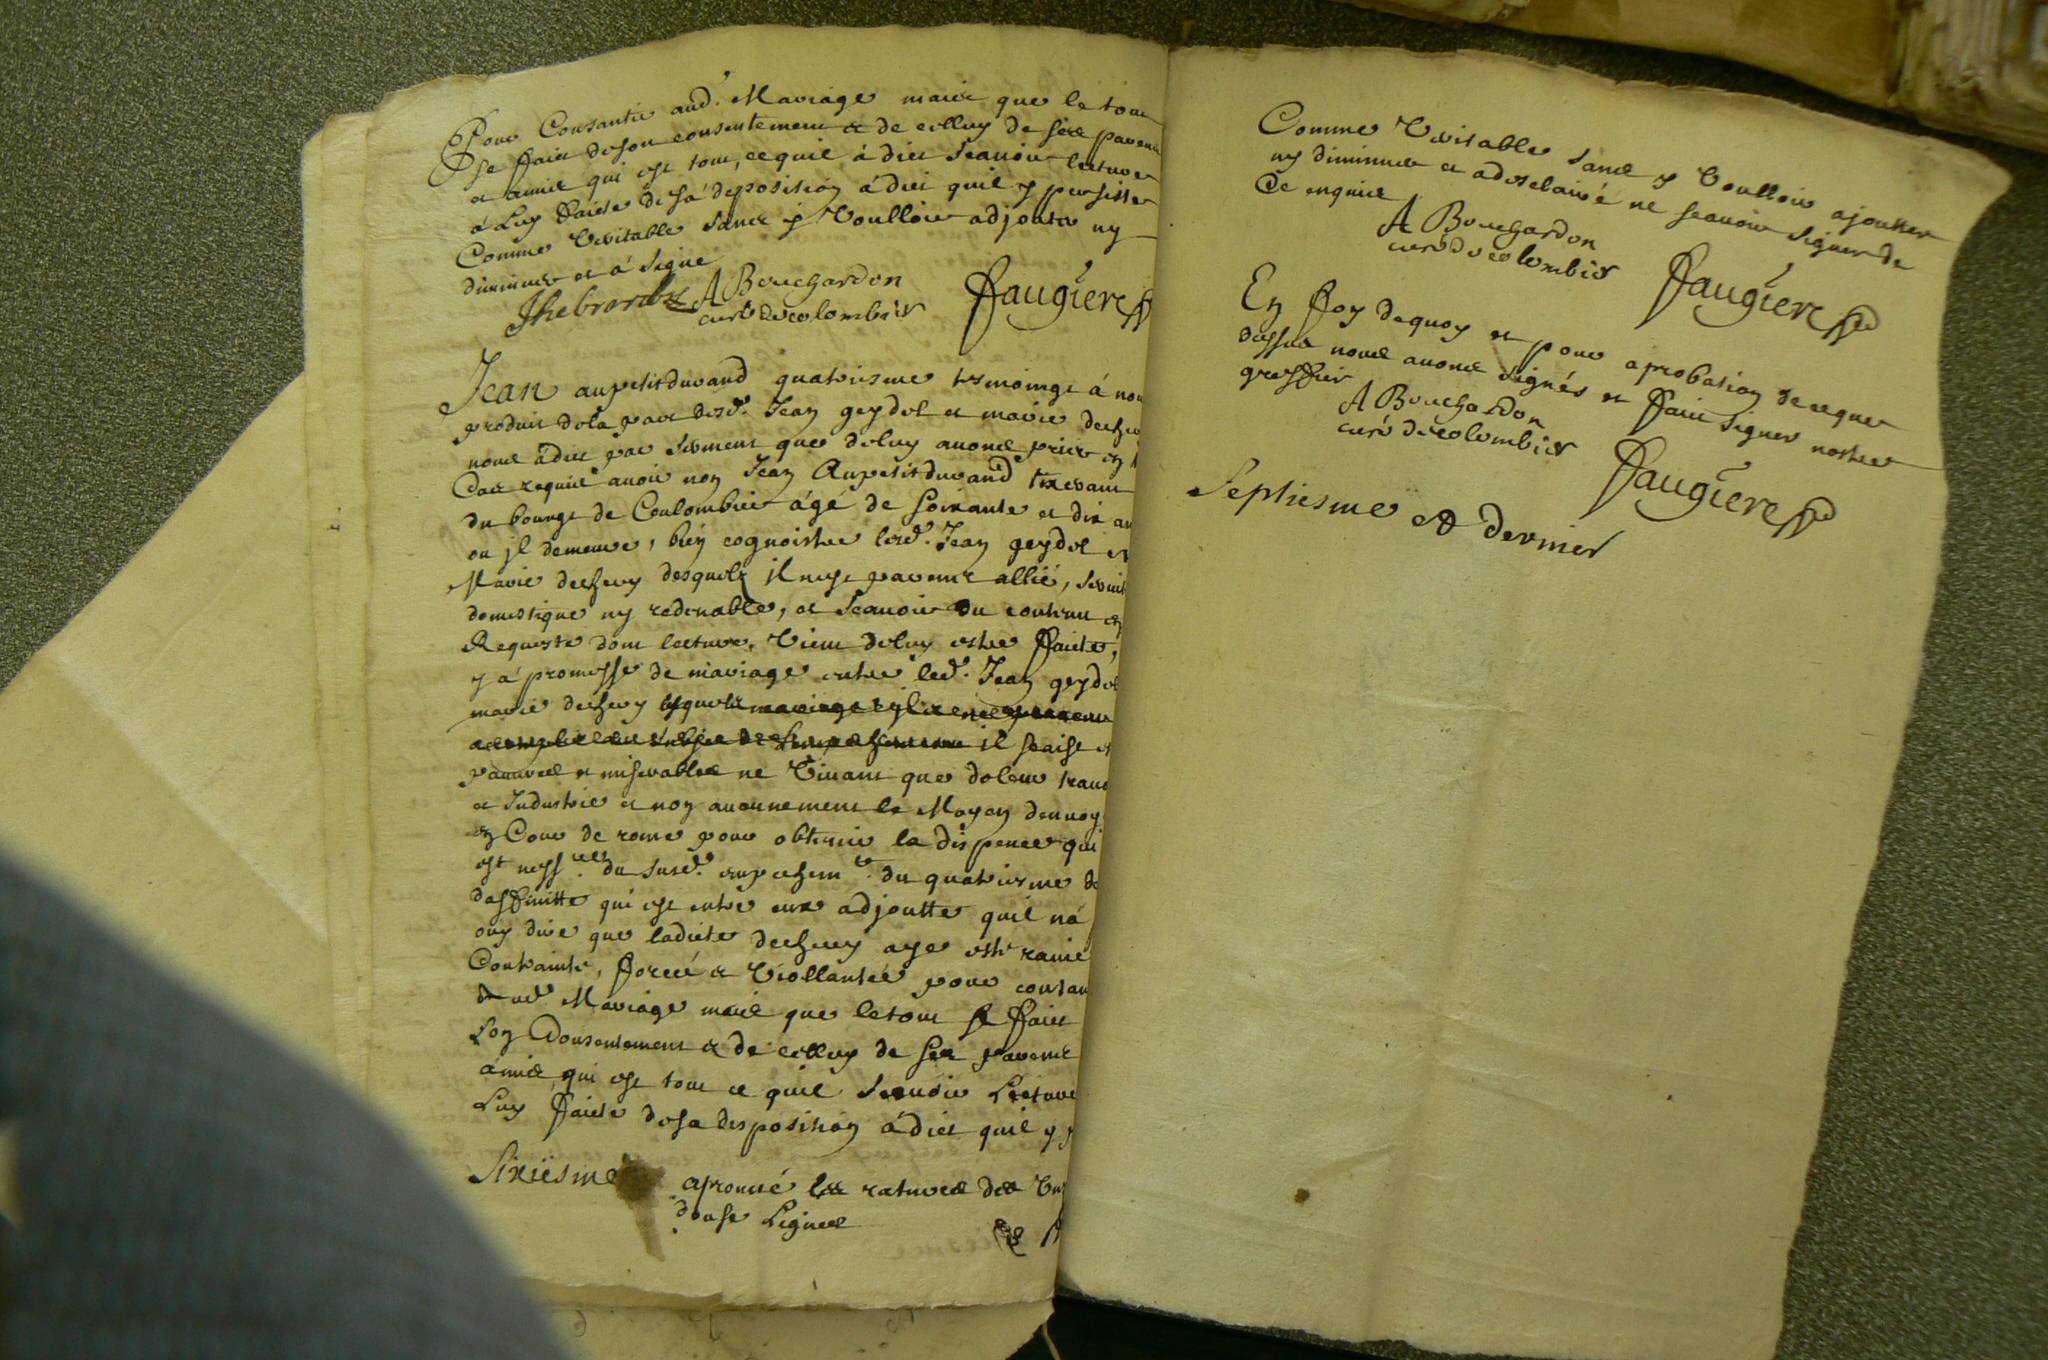 Pour Consantir aud. Mariage mais que le tout
se fair de son consentement & de celluy de ses parens
et amis qui est tout, ce quil à dict scauoir lecture
à Luy Faicte de sa deposition à dict quil y persiste
Comme Veritable sans y Voulloir adjouter ny
diminuer et a signé
A Bouchardon
curé de colombier
Faugiere
Jean aupetitdurand quatriesme tesmoingt à nous
produit de la part desd. Jean geydel et marie
nous à dict par serment que de luy auons pris
requis auoir nom Jean Aupetitdurand
du bourg de Coulombier âgé de soixante et dix ans
ou jl demeure, bien cognoistre lesd. Jean geydel et
Marie desquels il nest parent allié,
domestique ny redeuable, et scauoir du contenu en
Requeste dont lecture, Vient de luy estre Faicte,
y à promesse de mariage entre led. Jean geydel
marie il scaist
pauures et miserables ne Viuant que de leur
et Industrie et non aucunement le Moyen
en Cour de rome pour obtenir la dispence qui
est du susd. du quatriesme
daffinitté qui est entre eux adjoutte quil na
ouy dire que ladicte aye esté rauie
Contrainte, forcée & Viollantée pour
Mariage mais que le tout se Faict
son Consentement & de celluy de ses parens
amis, qui est tout ce quil scauoir Lecture
Luy Faicte de sa desposition à dict quil y
Sixiesme aprouué les ratures des
douse Lignes
Comme Veritable sans y Voulloir ajoutter
ny diminuer et a desclairé ne scauoir signer de
ce enquis
A Bouchardon
curé de colombier
Faugiere
En Foy dequoy et pour aprobation de
dessus nous auons signés et Faict signer nostre
greffier
A Bouchardon
curé de colombier
Faugiere
Septiesme & dernier